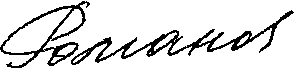 Романов